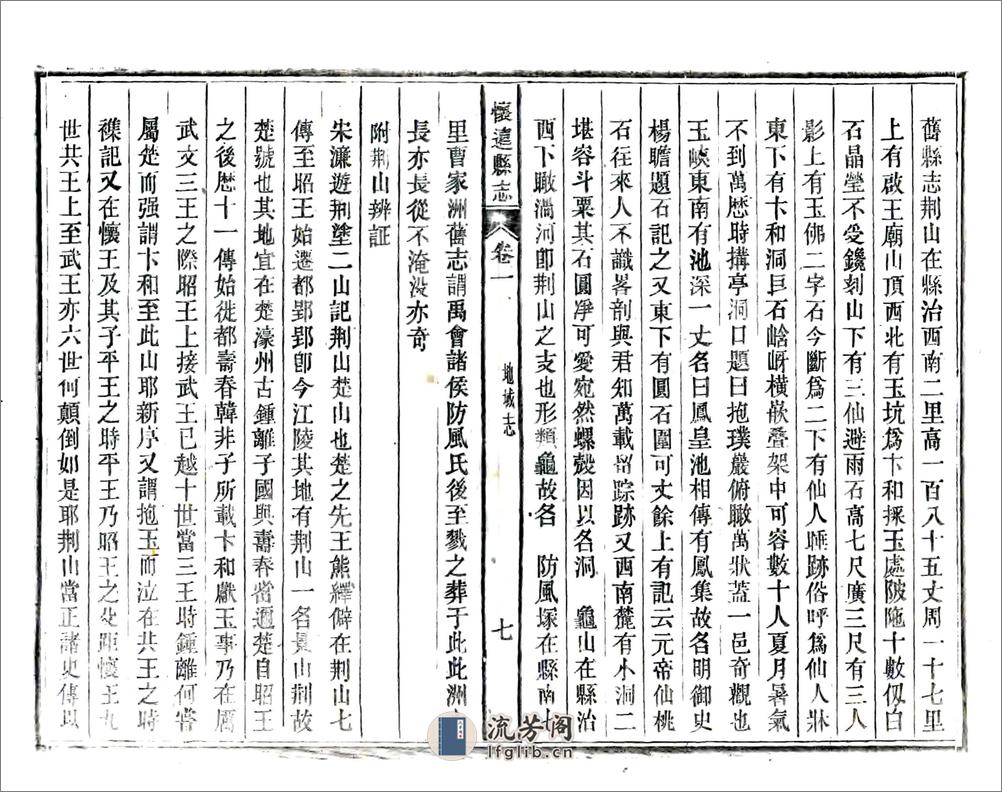 舊縣志荆山在縣治西南二里高一百八十五丈周一十七里
上有啟王廟山頂西北有玉坑爲卞和採玉處陂陁十數仭白
石晶瑩不受鑱刻山下有三仙避雨石高七尺廣三尺有三人
影上有玉佛二字石今斷爲二下有仙人睡跡俗呼爲仙人牀
東下有卞和洞巨石嵱岈橫嵌疊架中可容數十人夏月暑氣
不到萬歴時搆亭洞口題曰抱璞巖俯瞰萬狀蓋一邑奇觀也
玉峽東南有池深一丈名曰鳳皇池相傳有鳳集故名明御史
楊瞻題石記之又東下有圓石圍可丈餘上有記云元帝仙桃
石往來人不識畧剖與君知萬載留踪跡又西南麓有小洞二
堪容斗粟其石圓凈可愛宛然螺殼因以名洞　龜山在縣治
西下瞰渦河卽荆山之支也形類龜故名　防風塚在縣南十
懷遠縣志　卷一　地域志　七
里曹家洲舊志謂禹會諸侯防風氏後至戮之葬于此此洲水
長亦長從不淹沒亦奇
附荆山辨証
宋濂遊荆塗二山記荆山楚山也楚之先王熊繹僻在荆山七
傳至昭王始遷都郢郢卽今江陵其地有荆山一名景山荆故
楚號也其地宜在楚濠州古鍾離子國與壽春密邇楚自昭王
之後歴十一傳始徙都壽春韓非子所載卞和獻玉事乃在厲
武文三王之際昭王上接武王已越十世當三王時鍾離何嘗
屬楚而强謂卞和至此山耶新序又謂抱玉而泣在共王之時
襍記又在懷王及其子平王之時平王乃昭王之父距懷王九
世共王上至武王亦六世何顛倒如是耶荆山當正諸史傳以
流芳阁
lfglib.cn